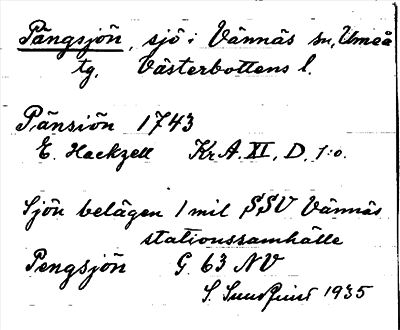 Pängsjön, sjö i Vännäs sn, Umeå
tg, Västerbottens l.
Pänsiön 1743
E. Hackzell Kr A. XI, D, 1:o.
Sjön belägen 1 mil SSV Vännäs
stationssamhälle
Pengsjön G 63 NV
S. Sundqvist 1935